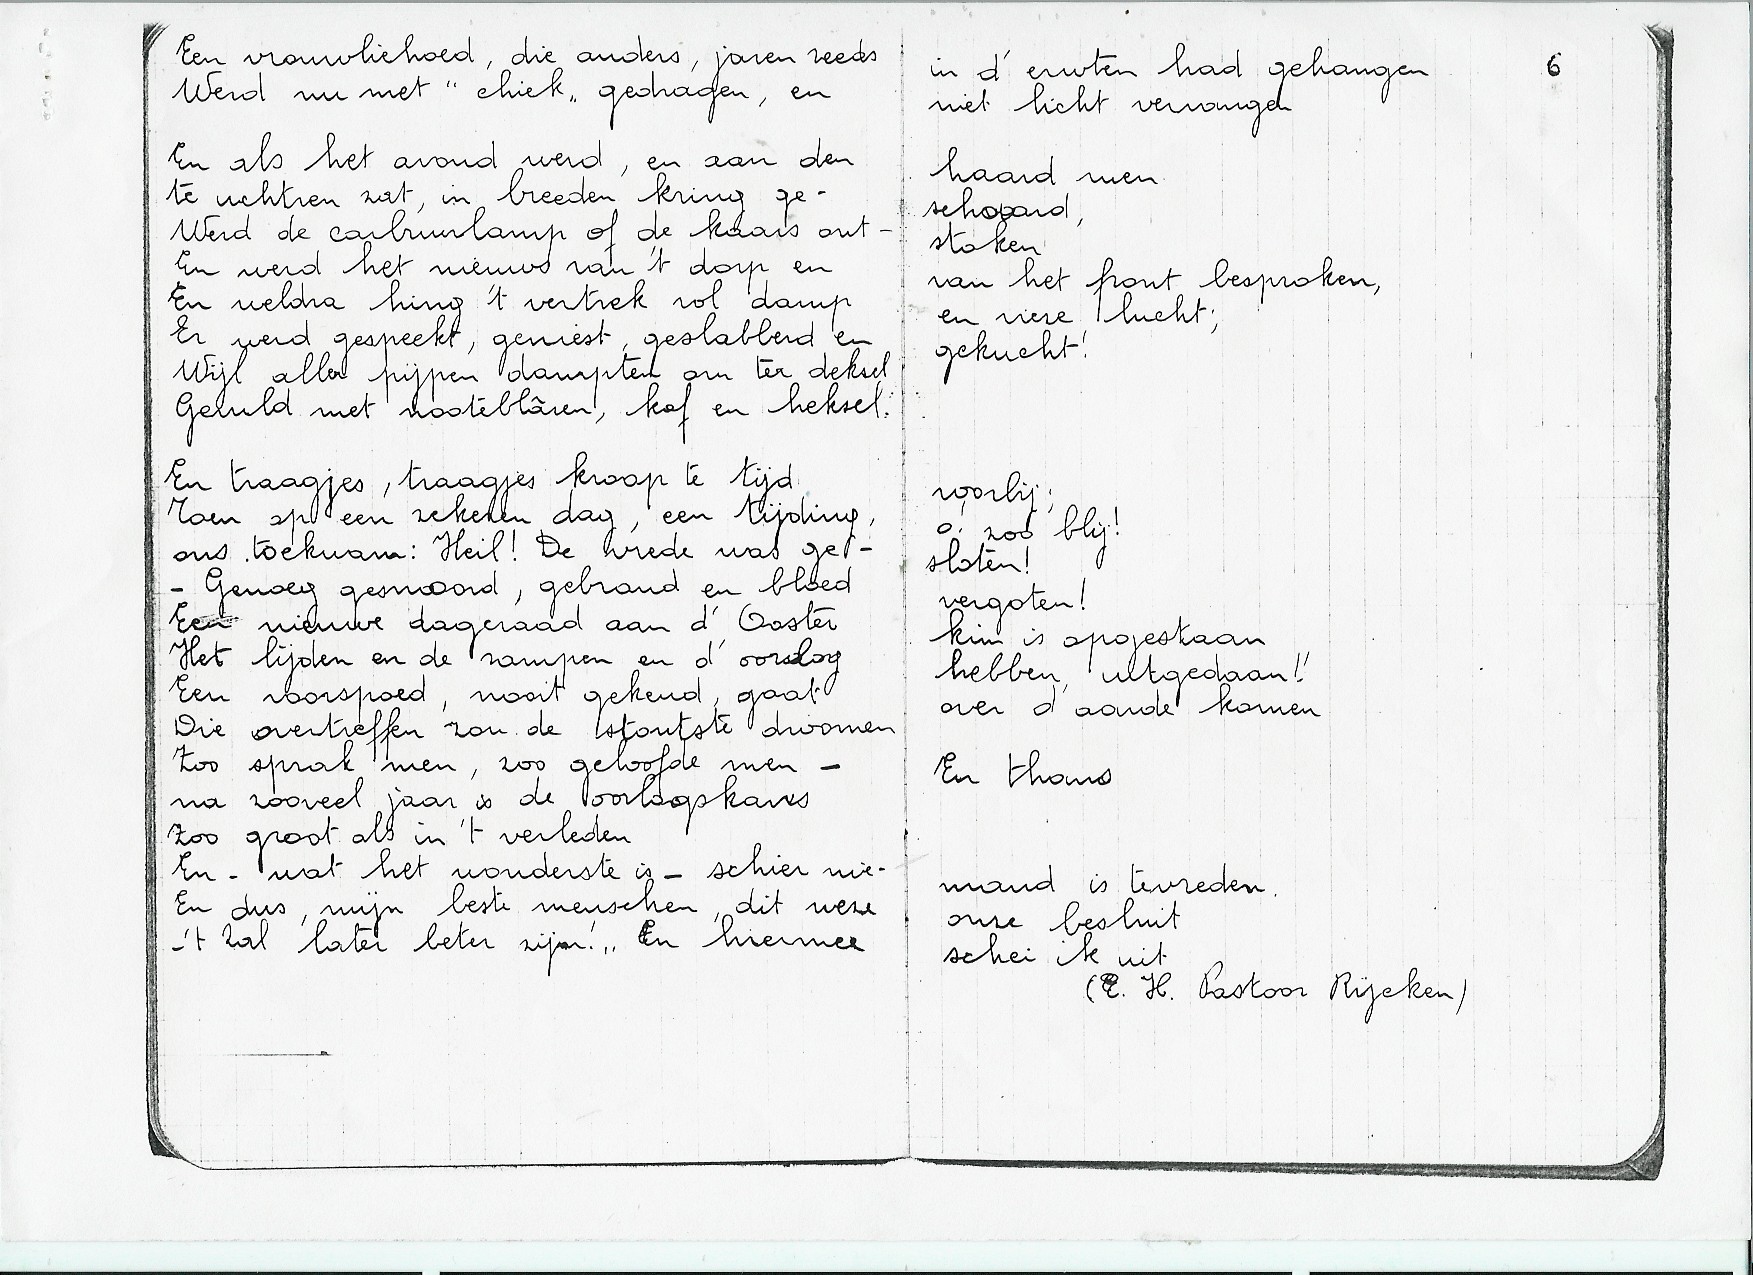 6
Een vrouwliehoed, die anders, jaren reeds in d' erwten had gehangen
Werd nu met "chiek„ gedragen, en niet licht vervangen
En als het avond werd, en aan den haard men
te uchtren zat, in breeden kring ge- schaard,
Werd de carbuurlamp of de kaars ont- stoken
En werd het nieuws van 't dorp en van het front besproken,
En weldra hing 't vertrek vol damp en vieze lucht;
Er werd gespeekt, geniest, geslabberd en gekucht!
Wijl aller pijpen dampten om ter deksel
Gevuld met nooteblâren, kaf en heksel.
En traagjes, traagjes kroop te tijd voorbij;
Toen op een zekeren dag, een tijding, o, zoo blij!
ons toekwam: Heil! De vrede was ge- sloten!
- Genoeg gesmoord, gebrand en bloed vergoten!
Een nieuwe dageraad aan d' Ooster kim is opgestaan
Het lijden en de rampen en d' oorslog hebben, uitgedaan!
Een voorspoed, nooit gekend, gaat over d'aarde komen
Die overtreffen zou de stoutste droomen
Zoo sprak men, zoo geloofde men - En thans
na zooveel jaar is de oorlogskans
Zoo groot als in 't verleden
En - wat het wonderste is - schier nie- mand is tevreden.
En dus, mijn beste menschen, dit weze onze besluit
-'t Zal later beter zijn!„ En hiermee schei ik uit
(E. H. Pastoor Rijcken)